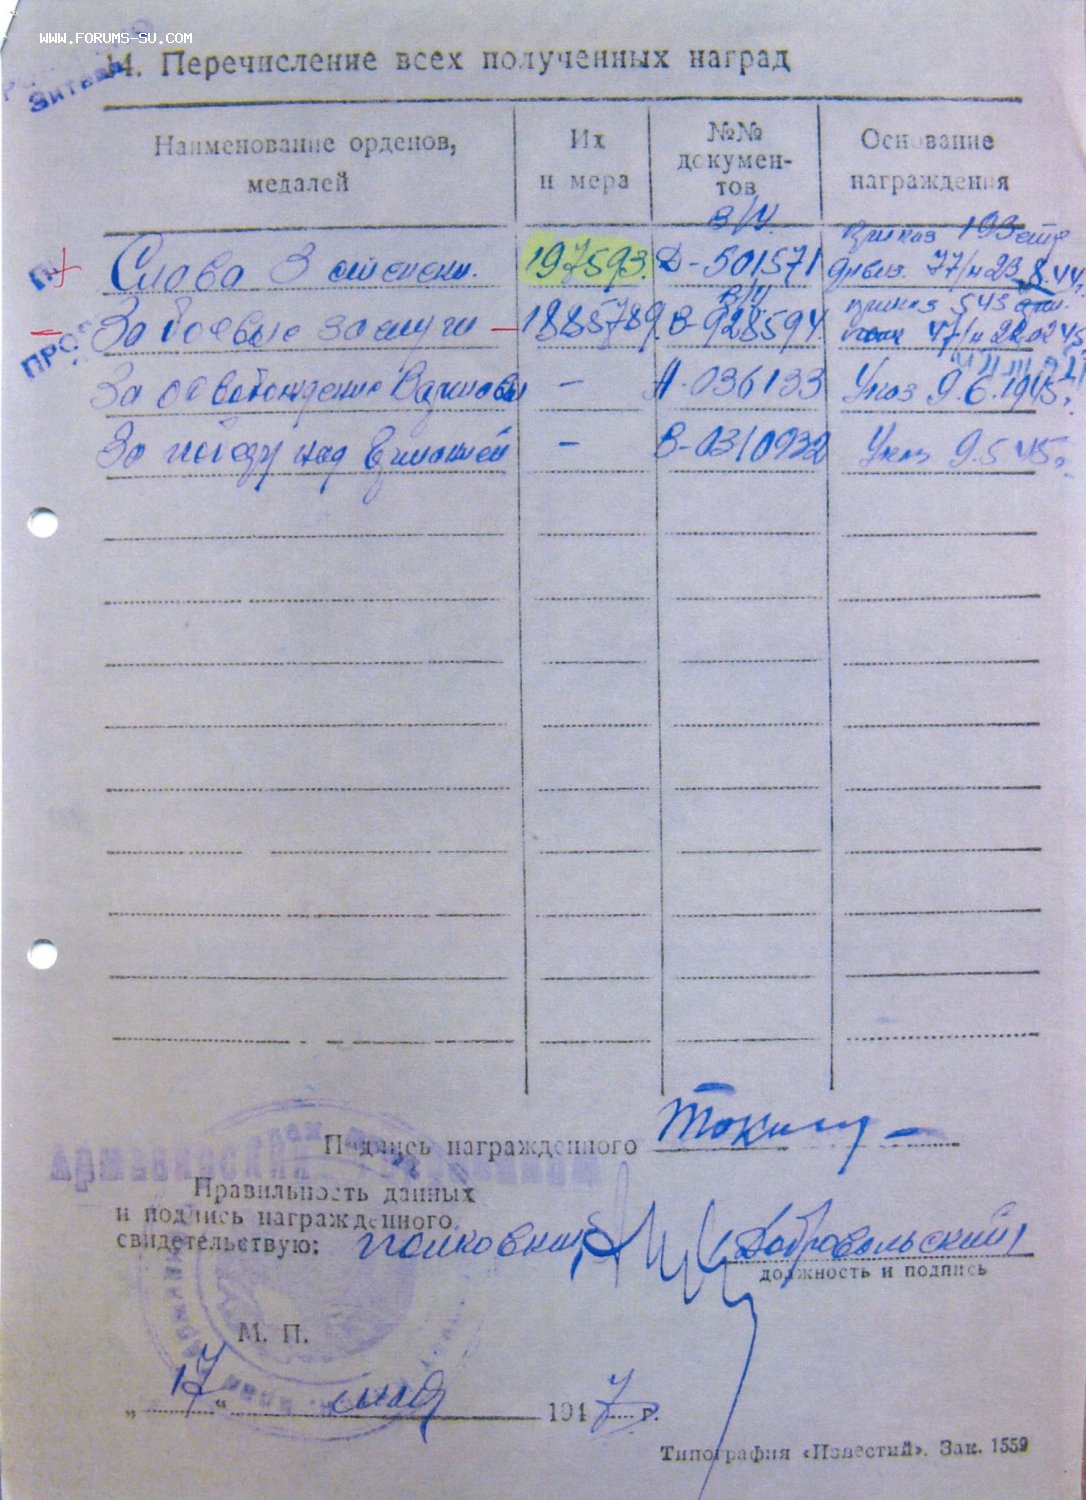 WWW.FORUMS-SU.COM
14. Перечисление всех полученных наград
Наименование орденов, медалей
Их н мера
№№ докумен-тов
Основание награждения
в/ч.
Приказ 193 стр
Слава 3 степени. 197593. Д-501571 дивиз. 77/н 23.8.44г.
в/ч Приказ 543
За боевые заслуги - 1885789. В-928594. 47/н 22.02.45г.
За освобождение Варшавы - А-036133 Указ 9.6.1945г.
За победу над Германией - В-0310932 Указ 9.5 45г.
ПРО
Подпись награжденного
Правильность данных
и подпись награжденного
свидетельствую: полковник Добровольский
должность и подпись
М. П.
„17“ мая 1947 г.
Типография «Известий». Зак. 1559